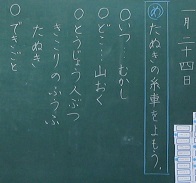 一月二十四日
め たぬきの糸車をよもう。
○いつ…むかし
○どこ…山おく
○とうじょう人ぶつ
きこりのふうふ
たぬき
○できごと